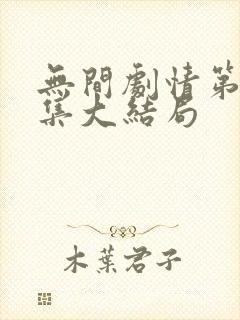 無間劇情第
集大結局
木葉君子